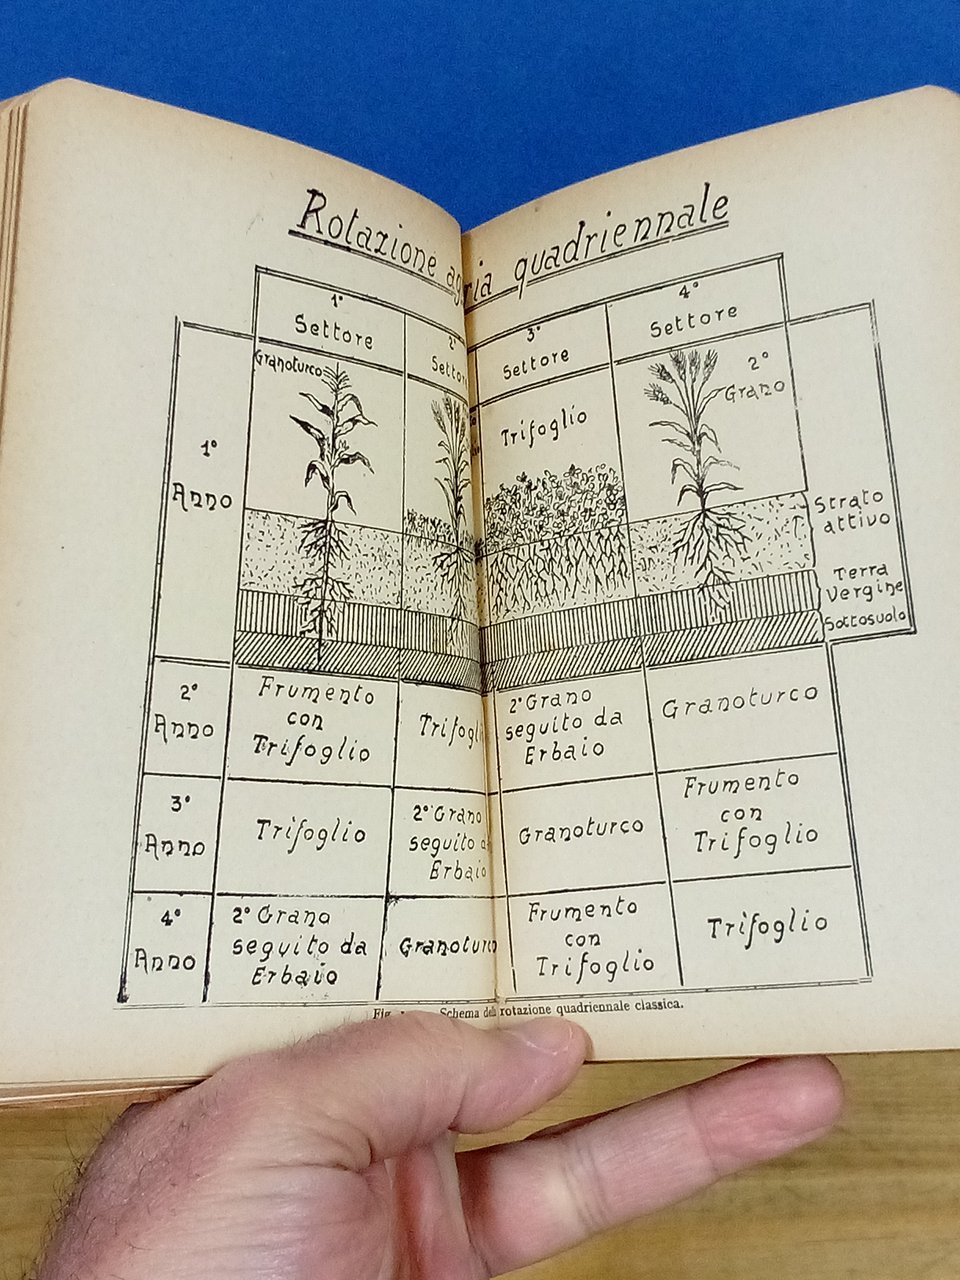 Rotazione ag ria quadriennale
1° Settore
2° Settor
3° Settore
4° Settore
1° Anno
Granoturco
Trifoglio
2° Grano
Strato
attivo
Terra
Vergine
Sottosuolo
2°
Anno
Frumento
con
Trifoglio
Trifogli
2° Grano
seguito da
Erbaio
Granoturco
3°
Anno
Trifoglio
2° Grano
seguito d
Erbaio
Granoturco
Frumento
con
Trifoglio
4°
Anno
2° Grano
seguito da
Erbaio
Granoturco
Frumento
con
Trifoglio
Trifoglio
Fig. Schema della rotazione quadriennale classica.